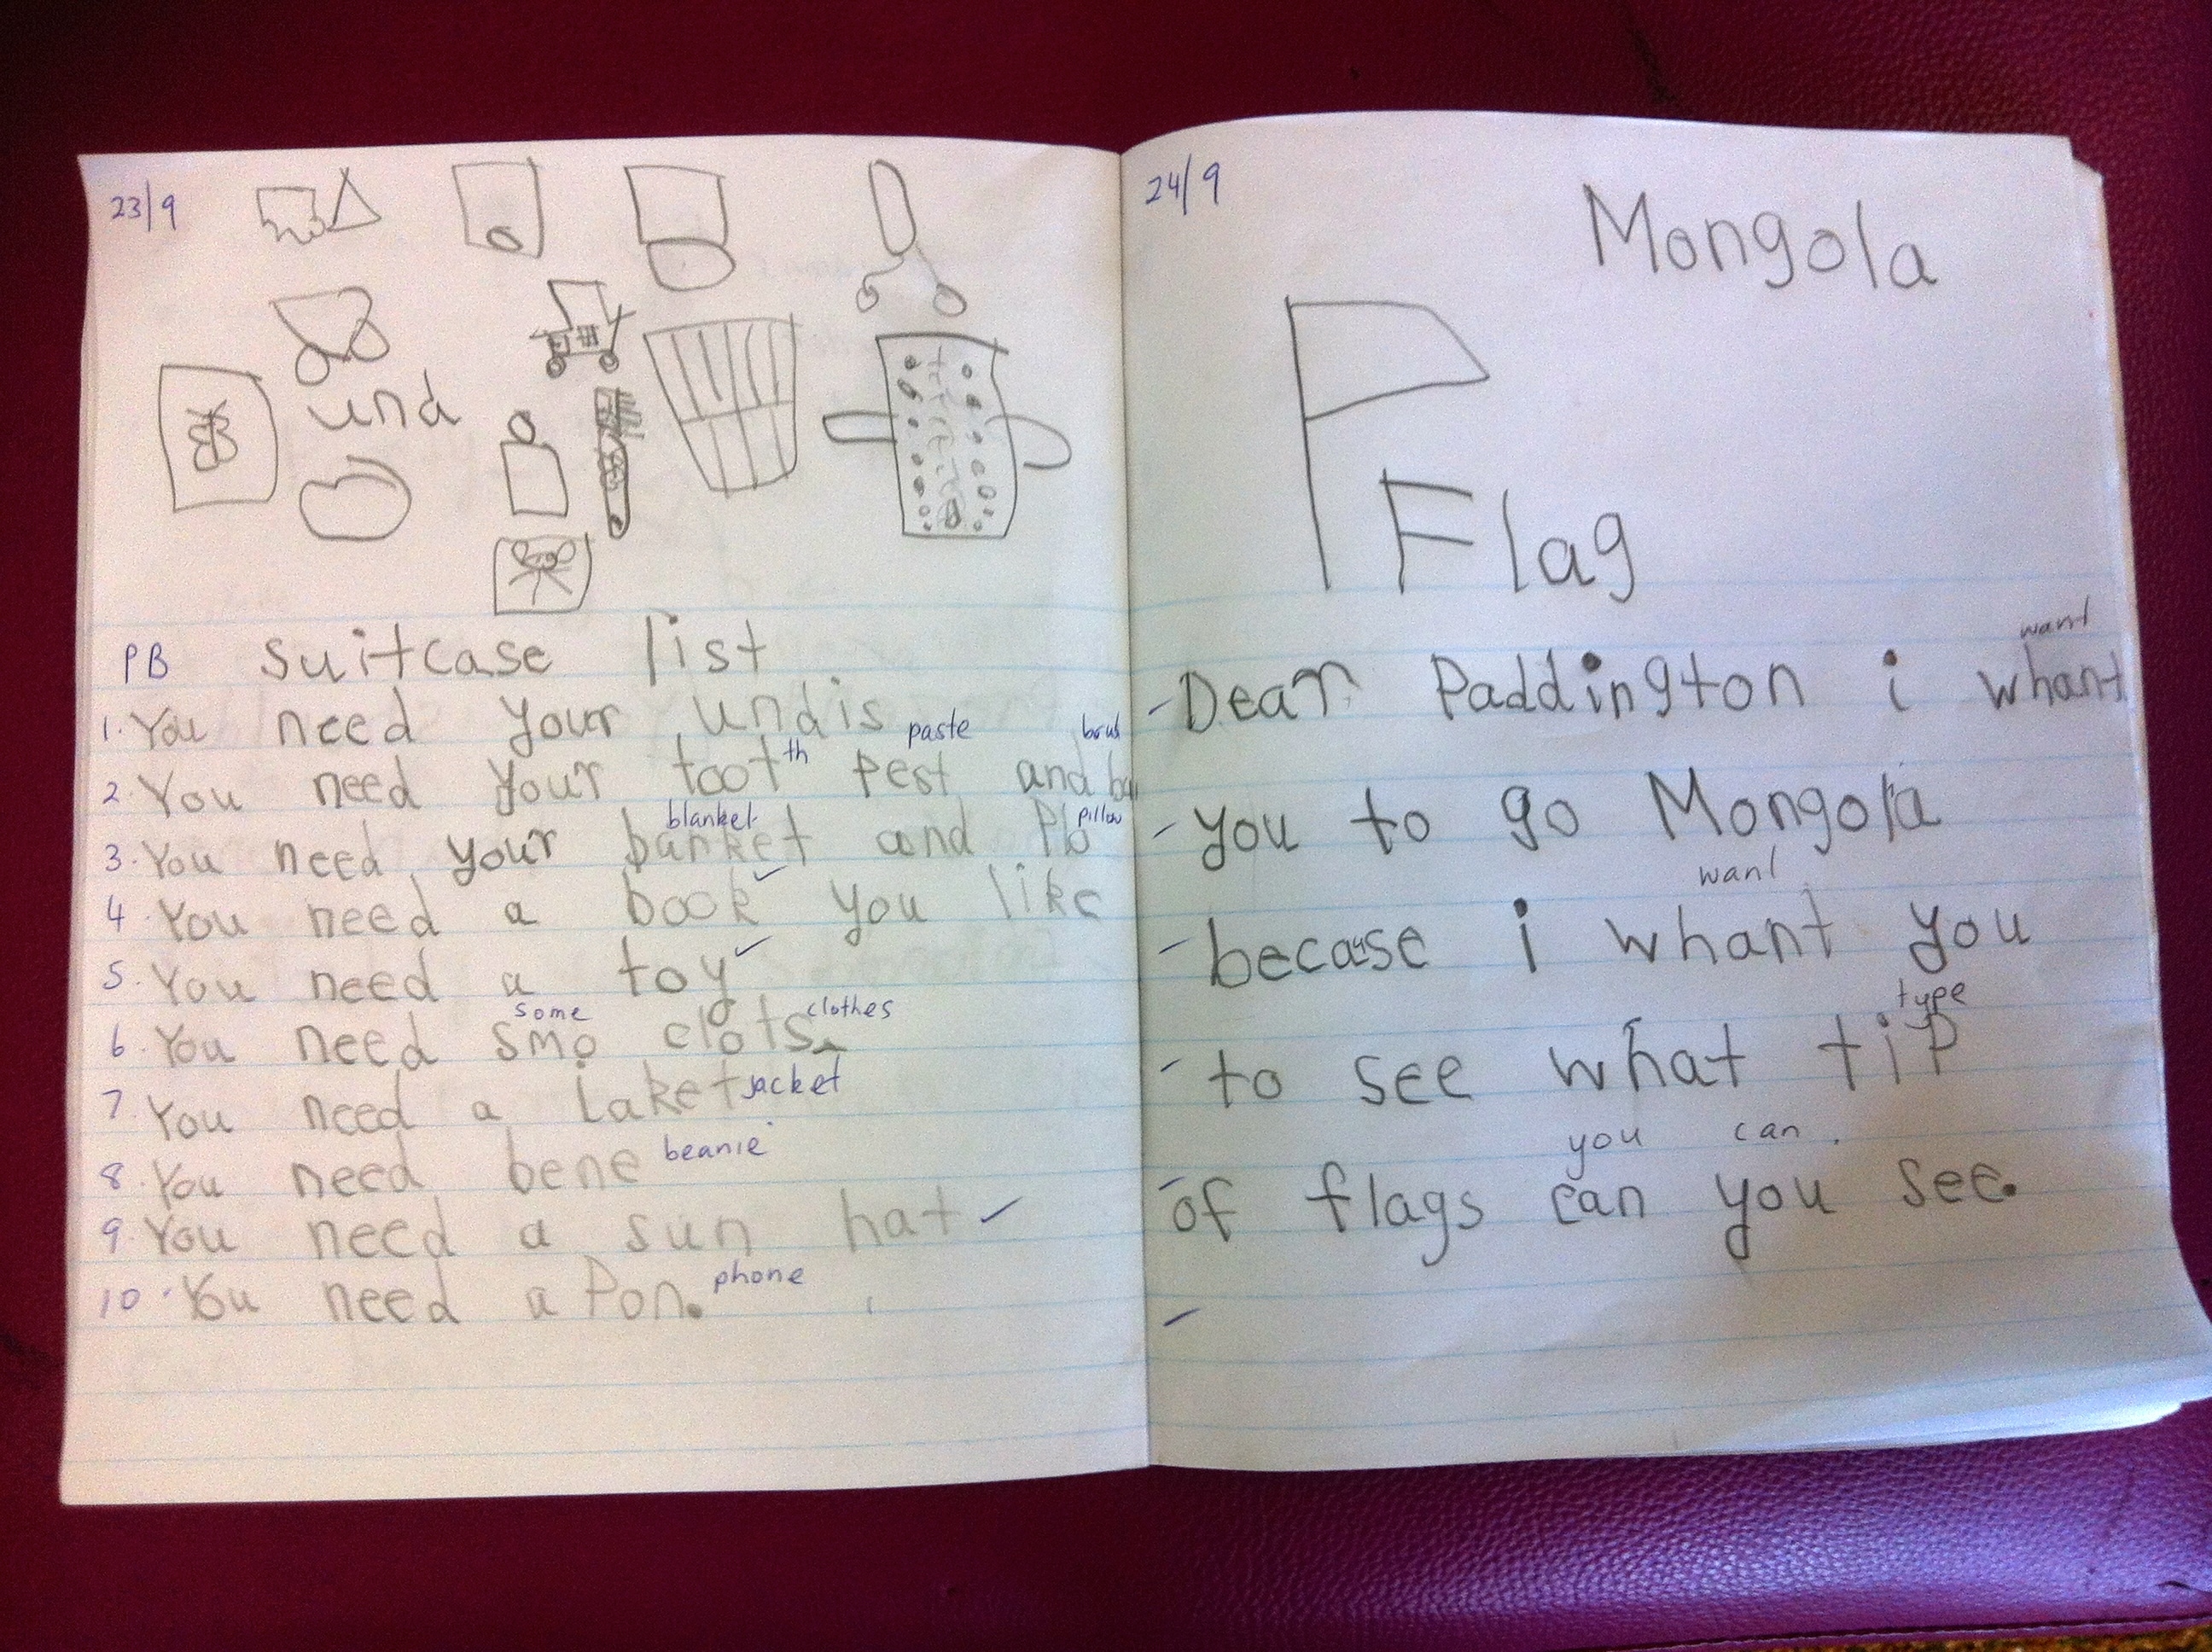 23/9
und
PB suitcase list
1. You need your undis
paste brush
2. You need your toot th pest and
blanket pillow
3. You need your banket and Plo
4. You need a book you like
5. You need a toy
some clothes
6. You need smo clots
7. You need a Laket jacket
8. You need bene beanie
9. You need a sun hat
10. You need a Pon. phone
24/9
Mongola
Flag
want
Dear Paddington i whant
you to go Mongola
want
becauese i whant you
type
to see what tip
you can
of flags can you see.